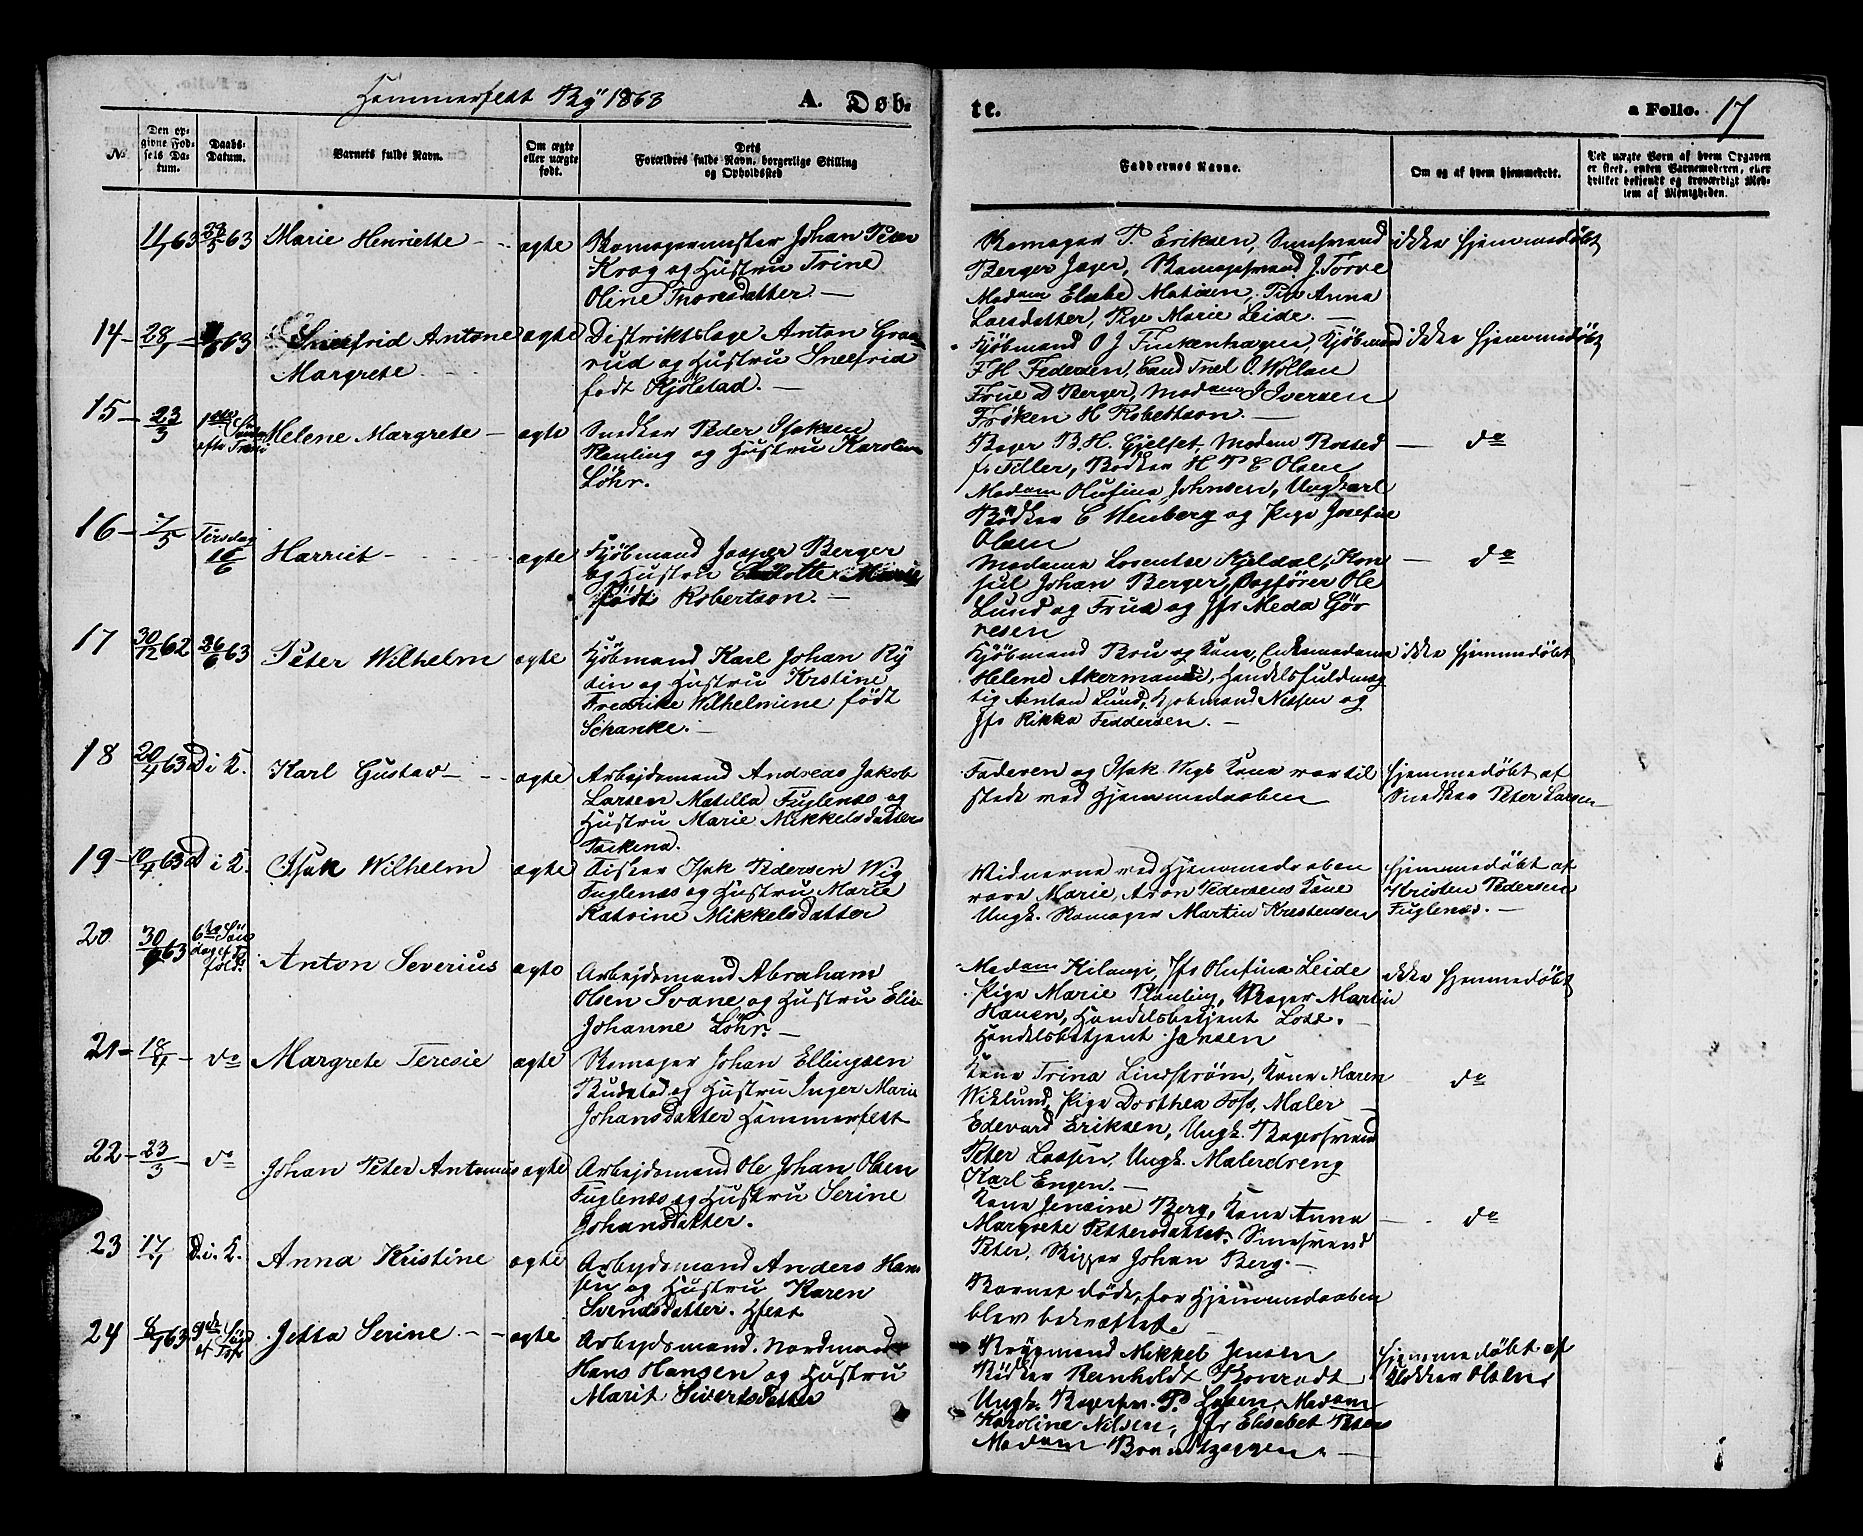 Hammerfest By 1863 A. Døb-
te.
a Folio. 17
No.
Den op-
givne Fød-
sels Da-
tum.
Daabs-
Datum.
Barnets fulde Navn.
Om ægte
eller uægte
født.
Dets
Forældres fulde Navn, borgerlige Stilling
og Opholdssted
Faddernes Navne.
Om og af hvem hjemmedøbt.
Ved uægte Børn af hvem Opgaven
er skeet, enten Barnemoderen, eller
hvilket bekjendt og troværdigt Med-
lem af Menigheden.
63 63 Marie Henriette ægte
Skomagermester Johan Peter
Krog og Hustru Trine
Oline Thoresdatter
Skomager P. Eriksen, Smedsvend
Berger Jager, Skomagersvend J. Torve
Madam Elsebe Matisen, Pige Anna
Larsdatter, Pige Marie Leide.
ikke hjemmedøbt
14 28 63 Sneefrid Antone
Margrete
ægte
Distriktslæge Anton Graa-
rud og Hustru Sneefrid
født Kjölstad.
Kjöbmand O J Finkenhagen, Kjöbmand
F H Feddersen, Cand Træl O. Wollan
Frue D Berger, Madam J Iversen
Frøken H Robertson.
ikke hjemmedøbt
15 23/3 1ste Söndag
efter Trin
Helene Margrete ægte
Snedker Peder Isaksen
Planting og Hustru Karoline
Löhr.
Bager B. H. Gjelset, Madam Rosted
f. Tiller, Bødker H P C Olsen
Madam Olufine Johnsen, Ungkarl
Bødker C Wenberg og Pige Josefine
Olsen
do
16 7/5 Tirsdag
16/6
Harriet ægte
Kjöbmand Jasper Berger
og Hustru Charlotte Marie
født Robertson.
Madame Lorentse Kjeldal, Kon-
sul Johan Berger, Bogfører Ole
Lund og Frue og Jfr Meda Gör-
resen
do
17 30/12 62 26/6 63 Peter Wilhelm ægte
Kjöbmand Karl Johan Ry
din og Hustru Kristine
Fredrike Wilhelmine født
Schanke.
Kjöbmand Bru og Kone, Enkemadame
Helene Akermand, Handelsfuldmæg
tig Anton Lund, Kjøbmand Nissen og
Jfr Rikka Feddersen.
ikke hjemmedøbt
18 20/4 63 D i K. Karl Gustav ægte
Arbejdsmand Andreas Jakob
Larsen Matilla Fuglenæs og
Hustru Marie Mikkelsdatter
Faderen og Isak Wigs Kone var til
stede ved Hjemmedaaben
Hjemmedøbt af
Snedker Peter Larsen
19 10/4 63 D i K. Isak Wilhelm ægte
Fisker Isak Pedersen Wig
Fuglenæs og Hustru Marie
Katrine Mikkelsdatter
Widnerne ved Hjemmedaaben
vare Marie, Aron Pedersens Kone
Ungk. Skomager Martin Krestensen
Hjemmedøbt af
Kristen Pedersen
Fuglenæs.
20 30 63 6te Sön
Anton Severius ægte
Arbejdsmand Abraham
Olsen Svane og Hustru Elis
Johanne Löhr.
Madam Kilangi, Jfr Olufine Leide
Pige Marie Planting, Bager Martin
Hansen, Handelsbetjent
Handelsbetjent Jansen
ikke hjemmedøbt
21 18/4 do Margrete Teresie ægte
Skomager Johan Ellingsen
Rudstad og Hustru Inger Marie
Johansdatter Hammerfest
Kone Trina Lindström, Kone Maren
Wiklund, Pige Dorthea Foss, Maler
Edevard Eriksen, Ungk. Bagersvend
Peter Lassen, Ungk. Malerdreng
Karl Engen.
do
22 23/3 do Johan Peter Antonius ægte
Arbejdsmand Ole Johan Olsen
Fuglenæs og Hustru Serine
Johansdatter.
Kone Jensine Berg, Kone Anna
Margrete Pettersdatter, Smedsvend
Peter, Skipper Johan Berg.
do
23 17/1 D. i. K. Anna Kristine ægte
Arbejdsmand Anders Han-
sen og Hustru Karen
Svendsdatter. Hfest
Barnet døde, før Hjemmedaaben
blev bekræftet.
24 8 63 9de Sön
Jetta Serine ægte
Arbejdsmand. Nordmand
Hans Hansen og Hustru
Marit Sivertsdatter
Rygmand Mikkel Jensen
Bødker Reinholdt
Ungk. Bagersv. P. Lassen, Madam
Karoline Nilsen, Jfr Elisabet Peters
Madam
Hjemmedøbt af
Klokker Olsen